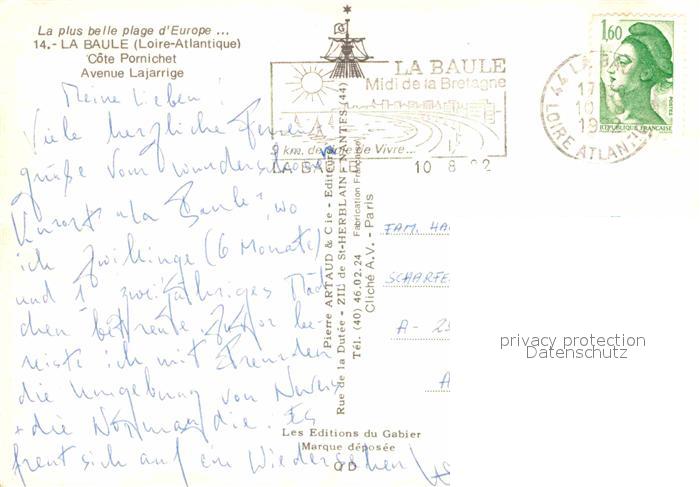 La plus belle plage d'Europe ...
14.- LA BAULE (Loire-Atlantique)
Côte Pornichet
Avenue Lajarrige
Meine Lieben!
Viele herzliche Ferien
grüße vom wunderschönen
Kurort "La Baule", wo
ich Zwillinge (6 Monate)
und 1 zweijähriges Mäd
chen betreute. Zuvor be-
reiste ich mit Freunden
die Umgebung von
+ die Normandie. Es
freut sich auf ein Wiedersehen
LA BAULE
Midi de la Bretagne
9 km. de Joie de Vivre...
LA BAULE 10 8 82
44 LA BAULE
17
10
19
LOIRE ATLANTIQUE
1,60
POSTES
REPUBLIQUE FRANÇAISE
Pierre ARTAUD & Cie - Editeurs
Rue de la Dutée - ZIL de St-HERBLAIN - NANTES (44)
Tél. (40) 46.02.24 Fabrication Française
Cliché A.V. - Paris
FAM. HA
SCHARFE
A - 25
A
Les Editions du Gabier
Marque déposée
privacy protection
Datenschutz